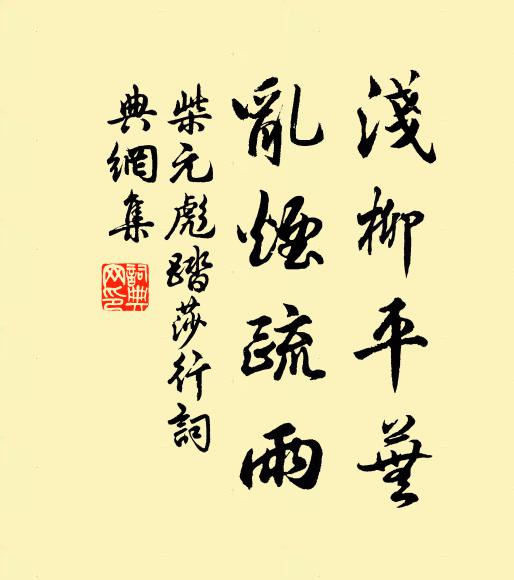 淺柳平蕪
亂煙疏雨
柴元彪踏莎行詞
典網集
詞典
网印